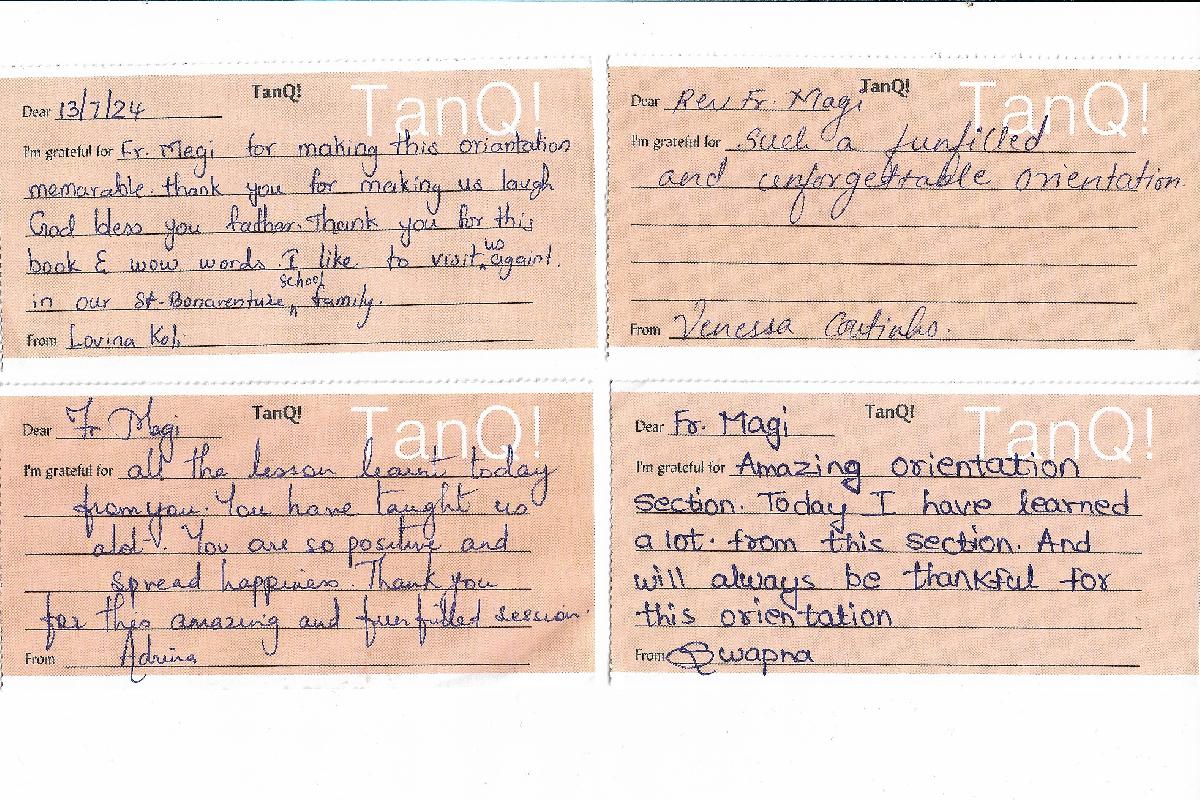 TanQ!
TanQ!
Dear 13/7/24
I'm grateful for Fr. Magi for making this oriantation
memarable. thank you for making us laugh
God bless you father. Thank you for this
book & wow words. I like to visit us againt.
in our St-Bonaventure school family.
From Lovina Koli
TanQ!
TanQ!
Dear Rev Fr. Magi
I'm grateful for such a funfilled
and unforgettable orientation.
From Venessa Coutinho.
TanQ!
TanQ!
Dear Fr Magi
I'm grateful for all the lesson learnt today
from you. You have taught us
alot. You are so positive and
spread happiness. Thank you
for this amazing and funfilled session.
From Adrina
TanQ!
TanQ!
Dear Fr. Magi
I'm grateful for Amazing orientation
section. Today I have learned
a lot. from this section. And
will always be thankful for
this orientation
From Swapna